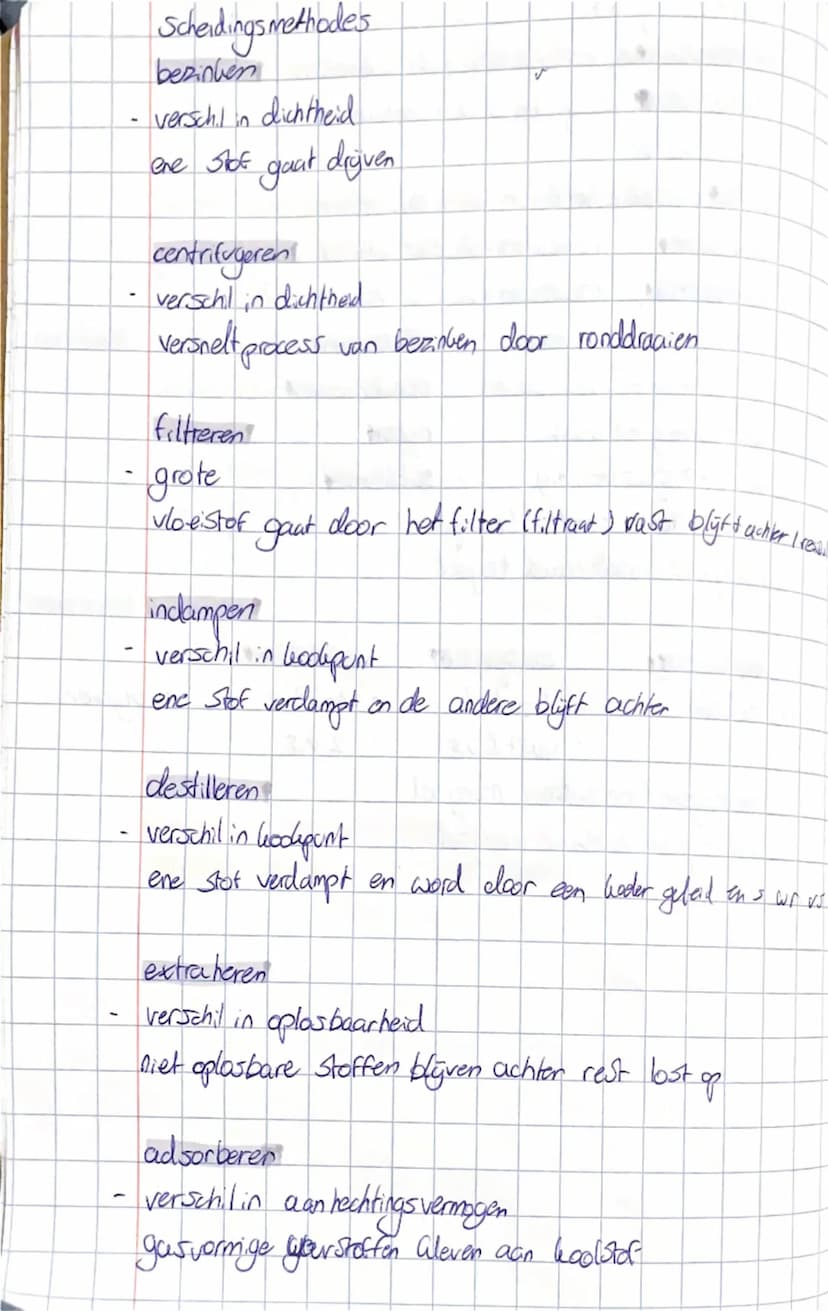 Scheidingsmethodes
bezinken
- verschil in dichtheid
ene stof gaat drijven
centrifugeren
- verschil in dichtheid
versnelt process van bezinken door ronddraaien
filtreren
- grote
vloeistof gaat door het filter (filtraat) vast blijft achter
indampen
- verschil in kookpunt
ene stof verdampt en de andere blijft achter
destilleren
- verschil in kookpunt
ene stof verdampt en word door een koeler geleid en
extraheren
- verschil in oplosbaarheid
niet oplosbare stoffen blijven achter rest lost op
adsorberen
- verschil in aanhechtingsvermogen
gasvormige geurstoffen kleven aan koolstof